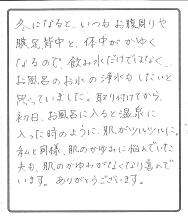 冬になると、いつもお腹周りや
腰足背中と、体中がかゆく
なるので、飲み水だけではなく、
お風呂のお水の浄水もしたいと
思っていました。取り付けてから、
初日、お風呂に入ると温泉に
入った時のように、肌がツルツルに。
私と同様、肌のかゆみに悩んでいた
夫も、肌のかゆみがなくなり喜んで
います。ありがとうございます。